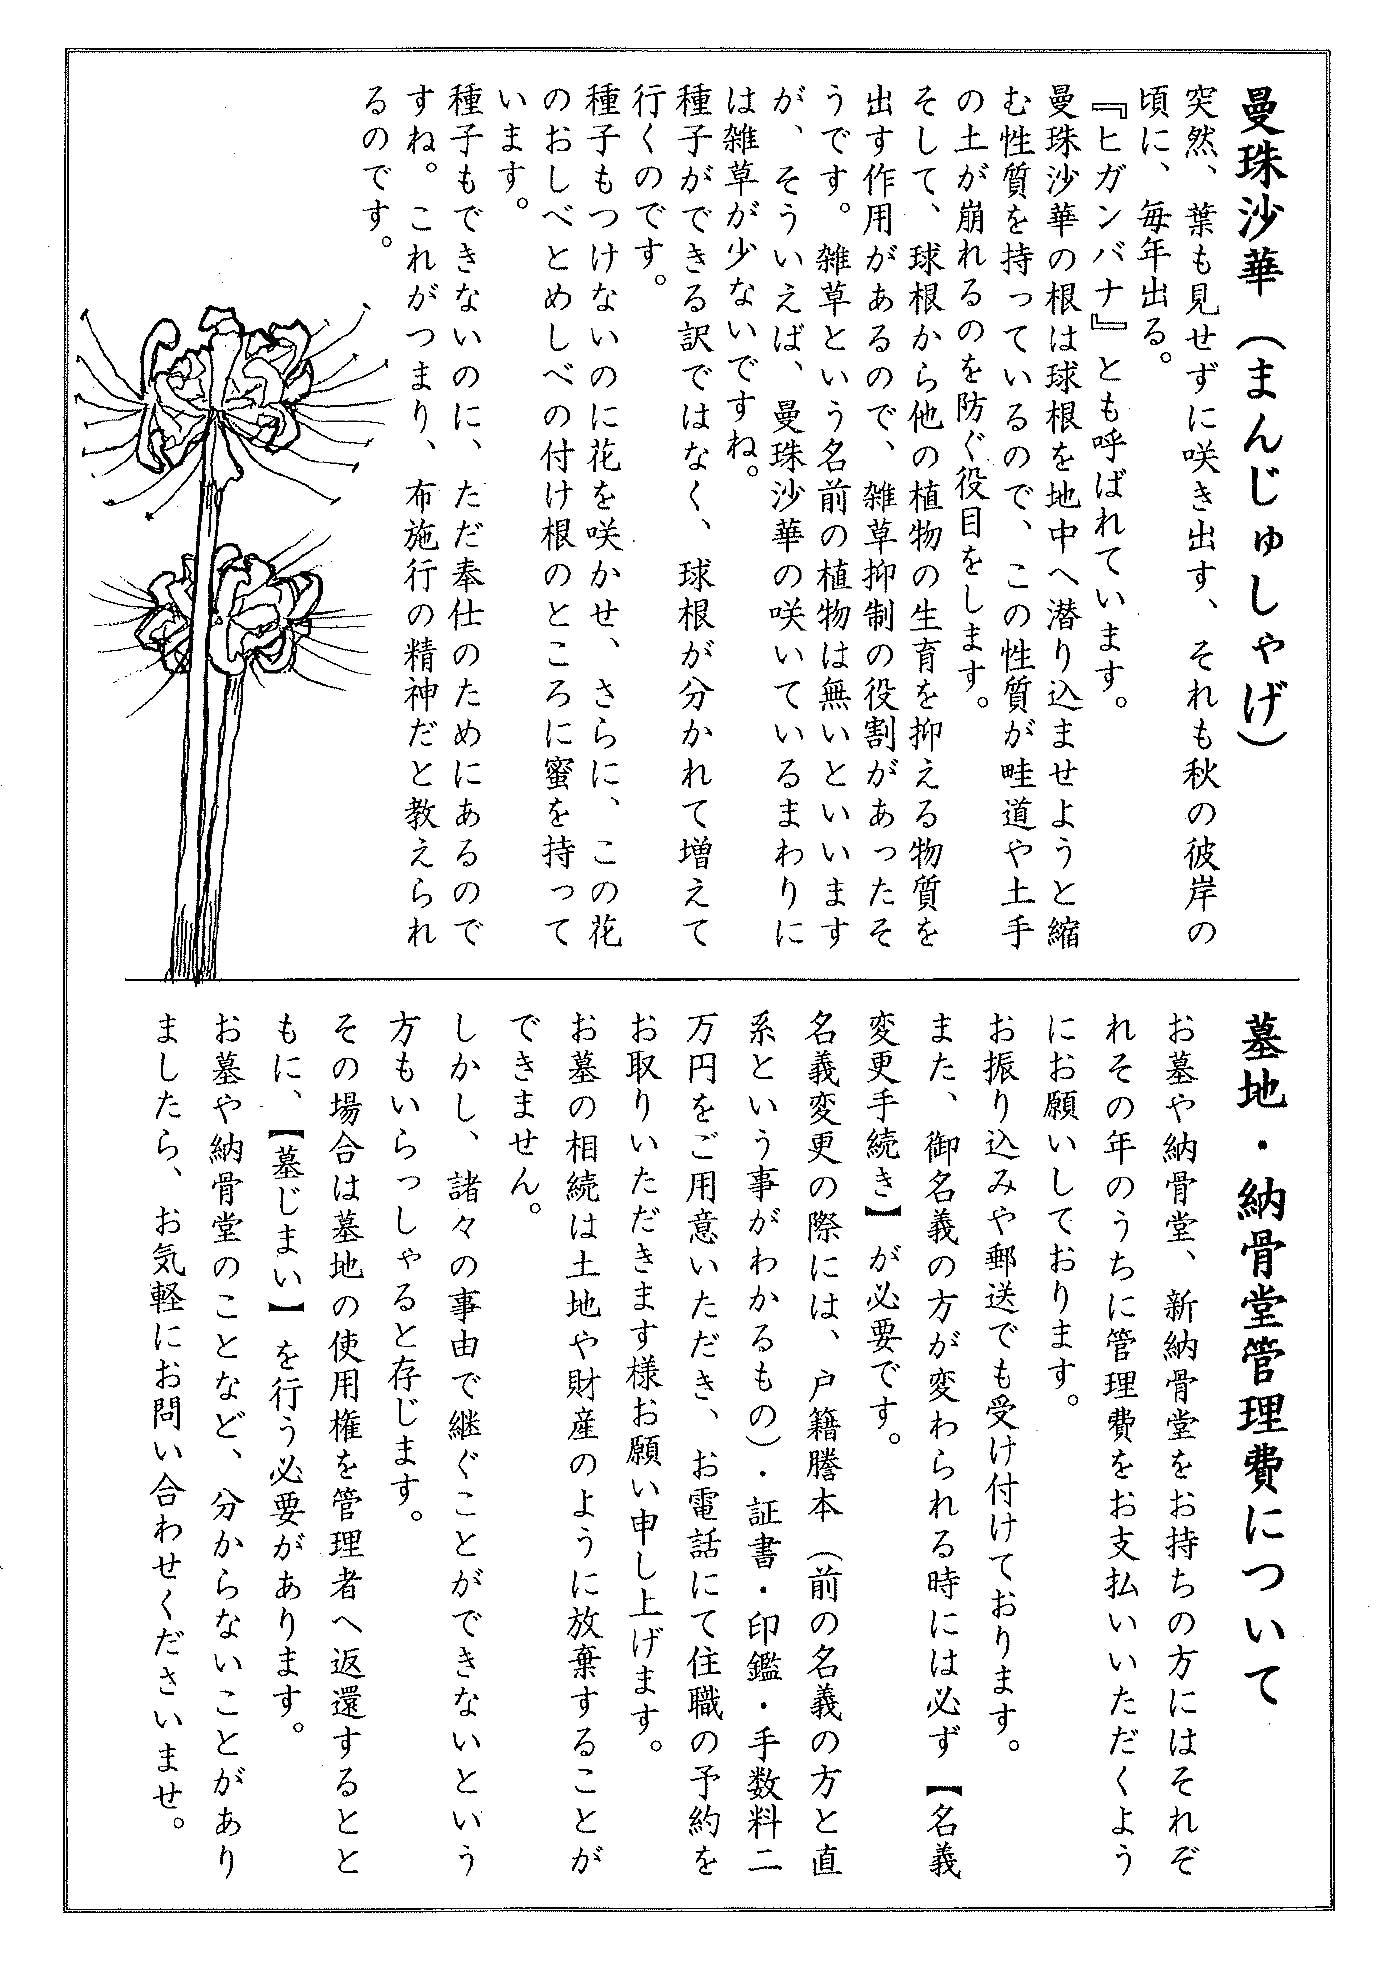 曼珠沙華（まんじゅしゃげ）
突然、葉も見せずに咲き出す、それも秋の彼岸の
頃に、毎年出る。
『ヒガンバナ』とも呼ばれています。
曼珠沙華の根は球根を地中へ潜り込ませようと縮
む性質を持っているので、この性質が畦道や土手
の土が崩れるのを防ぐ役目をします。
そして、球根から他の植物の生育を抑える物質を
出す作用があるので、雑草抑制の役割があったそ
うです。雑草という名前の植物は無いといいます
が、そういえば、曼珠沙華の咲いているまわりに
は雑草が少ないですね。
種子ができる訳ではなく、球根が分かれて増えて
行くのです。
種子もつけないのに花を咲かせ、さらに、この花
のおしべとめしべの付け根のところに蜜を持って
います。
種子もできないのに、ただ奉仕のためにあるので
すね。これがつまり、布施行の精神だと教えられ
るのです。
墓地・納骨堂管理費について
お墓や納骨堂、新納骨堂をお持ちの方にはそれぞ
れその年のうちに管理費をお支払いいただくよう
にお願いしております。
お振り込みや郵送でも受け付けております。
また、御名義の方が変わられる時には必ず【名義
変更手続き】が必要です。
名義変更の際には、戸籍謄本（前の名義の方と直
系という事がわかるもの）・証書・印鑑・手数料二
万円をご用意いただき、お電話にて住職の予約を
お取りいただきます様お願い申し上げます。
お墓の相続は土地や財産のように放棄することが
できません。
しかし、諸々の事由で継ぐことができないという
方もいらっしゃると存じます。
その場合は墓地の使用権を管理者へ返還するとと
もに、【墓じまい】を行う必要があります。
お墓や納骨堂のことなど、分からないことがあり
ましたら、お気軽にお問い合わせくださいませ。